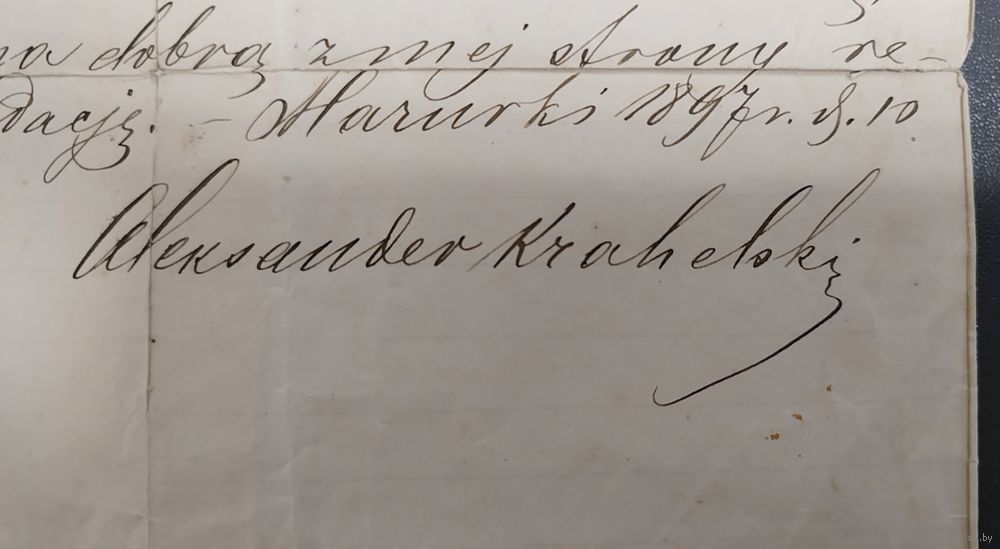 na dobrą z mej strony re-
dację. – Mazurki 1897 r. d. 10
Aleksander Krahelski